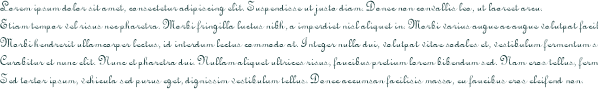 Lorem ipsum dolor sit amet, consectetur adipiscing elit. Suspendisse ut justo diam. Donec non convallis leo, ut laoreet arcu.
Etiam tempor vel risus nec pharetra. Morbi fringilla luctus nibh, a imperdiet nisl aliquet in. Morbi varius augue ac augue volutpat facil
Morbi hendrerit ullamcorper lectus, id interdum lectus commodo at. Integer nulla dui, volutpat vitae sodales et, vestibulum fermentum s
Curabitur et nunc elit. Nunc et pharetra dui. Nullam aliquet ultrices risus, faucibus pretium lorem bibendum sed. Nam eros tellus, ferm
Sed tortor ipsum, vehicula sed purus eget, dignissim vestibulum tellus. Donec accumsan facilisis massa, eu faucibus eros eleifend non.